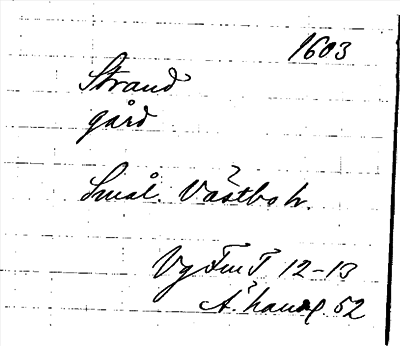 1603
Strand
gård
Smål. Västbo h.
VgFmT 12-13
A. handl. 52